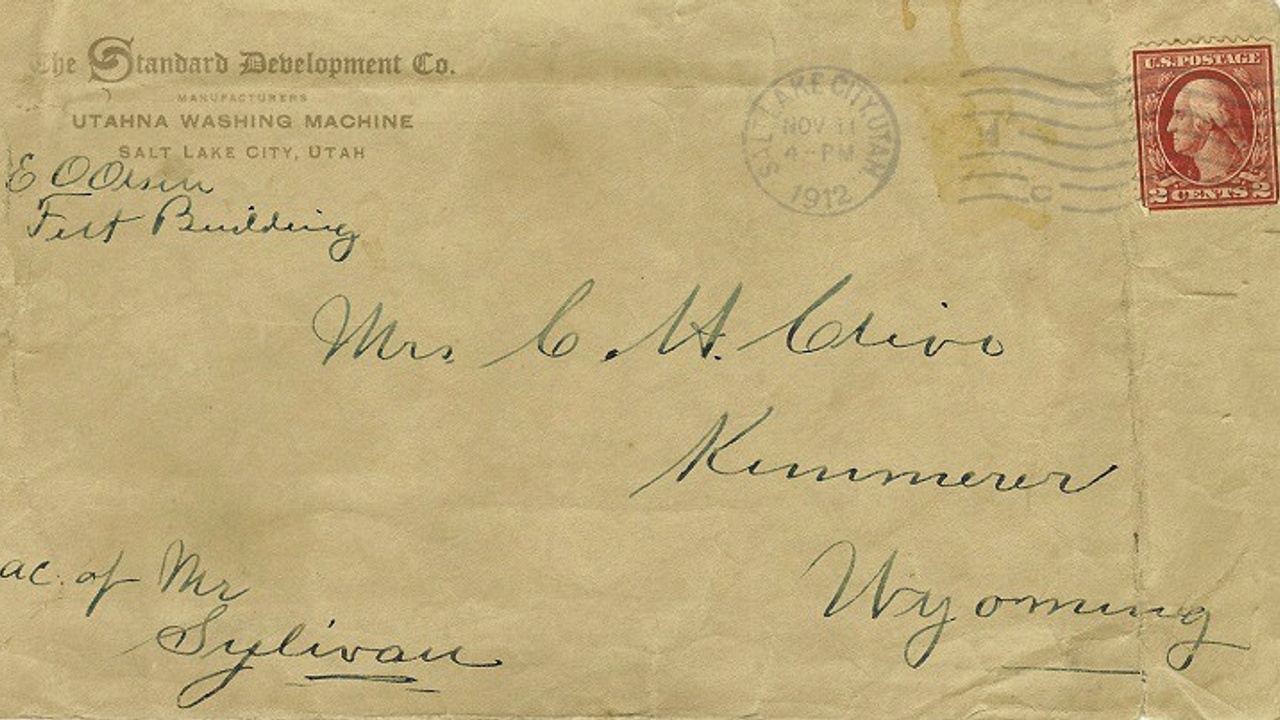 The Standard Development Co.
MANUFACTURERS
UTAHNA WASHING MACHINE
SALT LAKE CITY, UTAH
E O Olsen
Felt Building
SALT LAKE CITY, UTAH
NOV 11
4-PM
1912
U.S. POSTAGE
2 CENTS 2
Mrs. C. H. Clive
Kemmerer
Wyoming
ac. of Mr
Sylivan